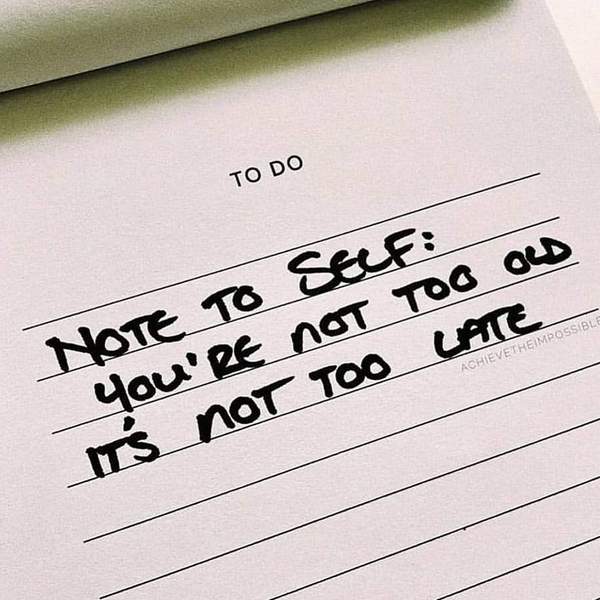 TO DO
NOTE TO SELF:
YOU'RE NOT TOO OLD
IT'S NOT TOO LATE
ACHIEVETHEIMPOSSIBLE